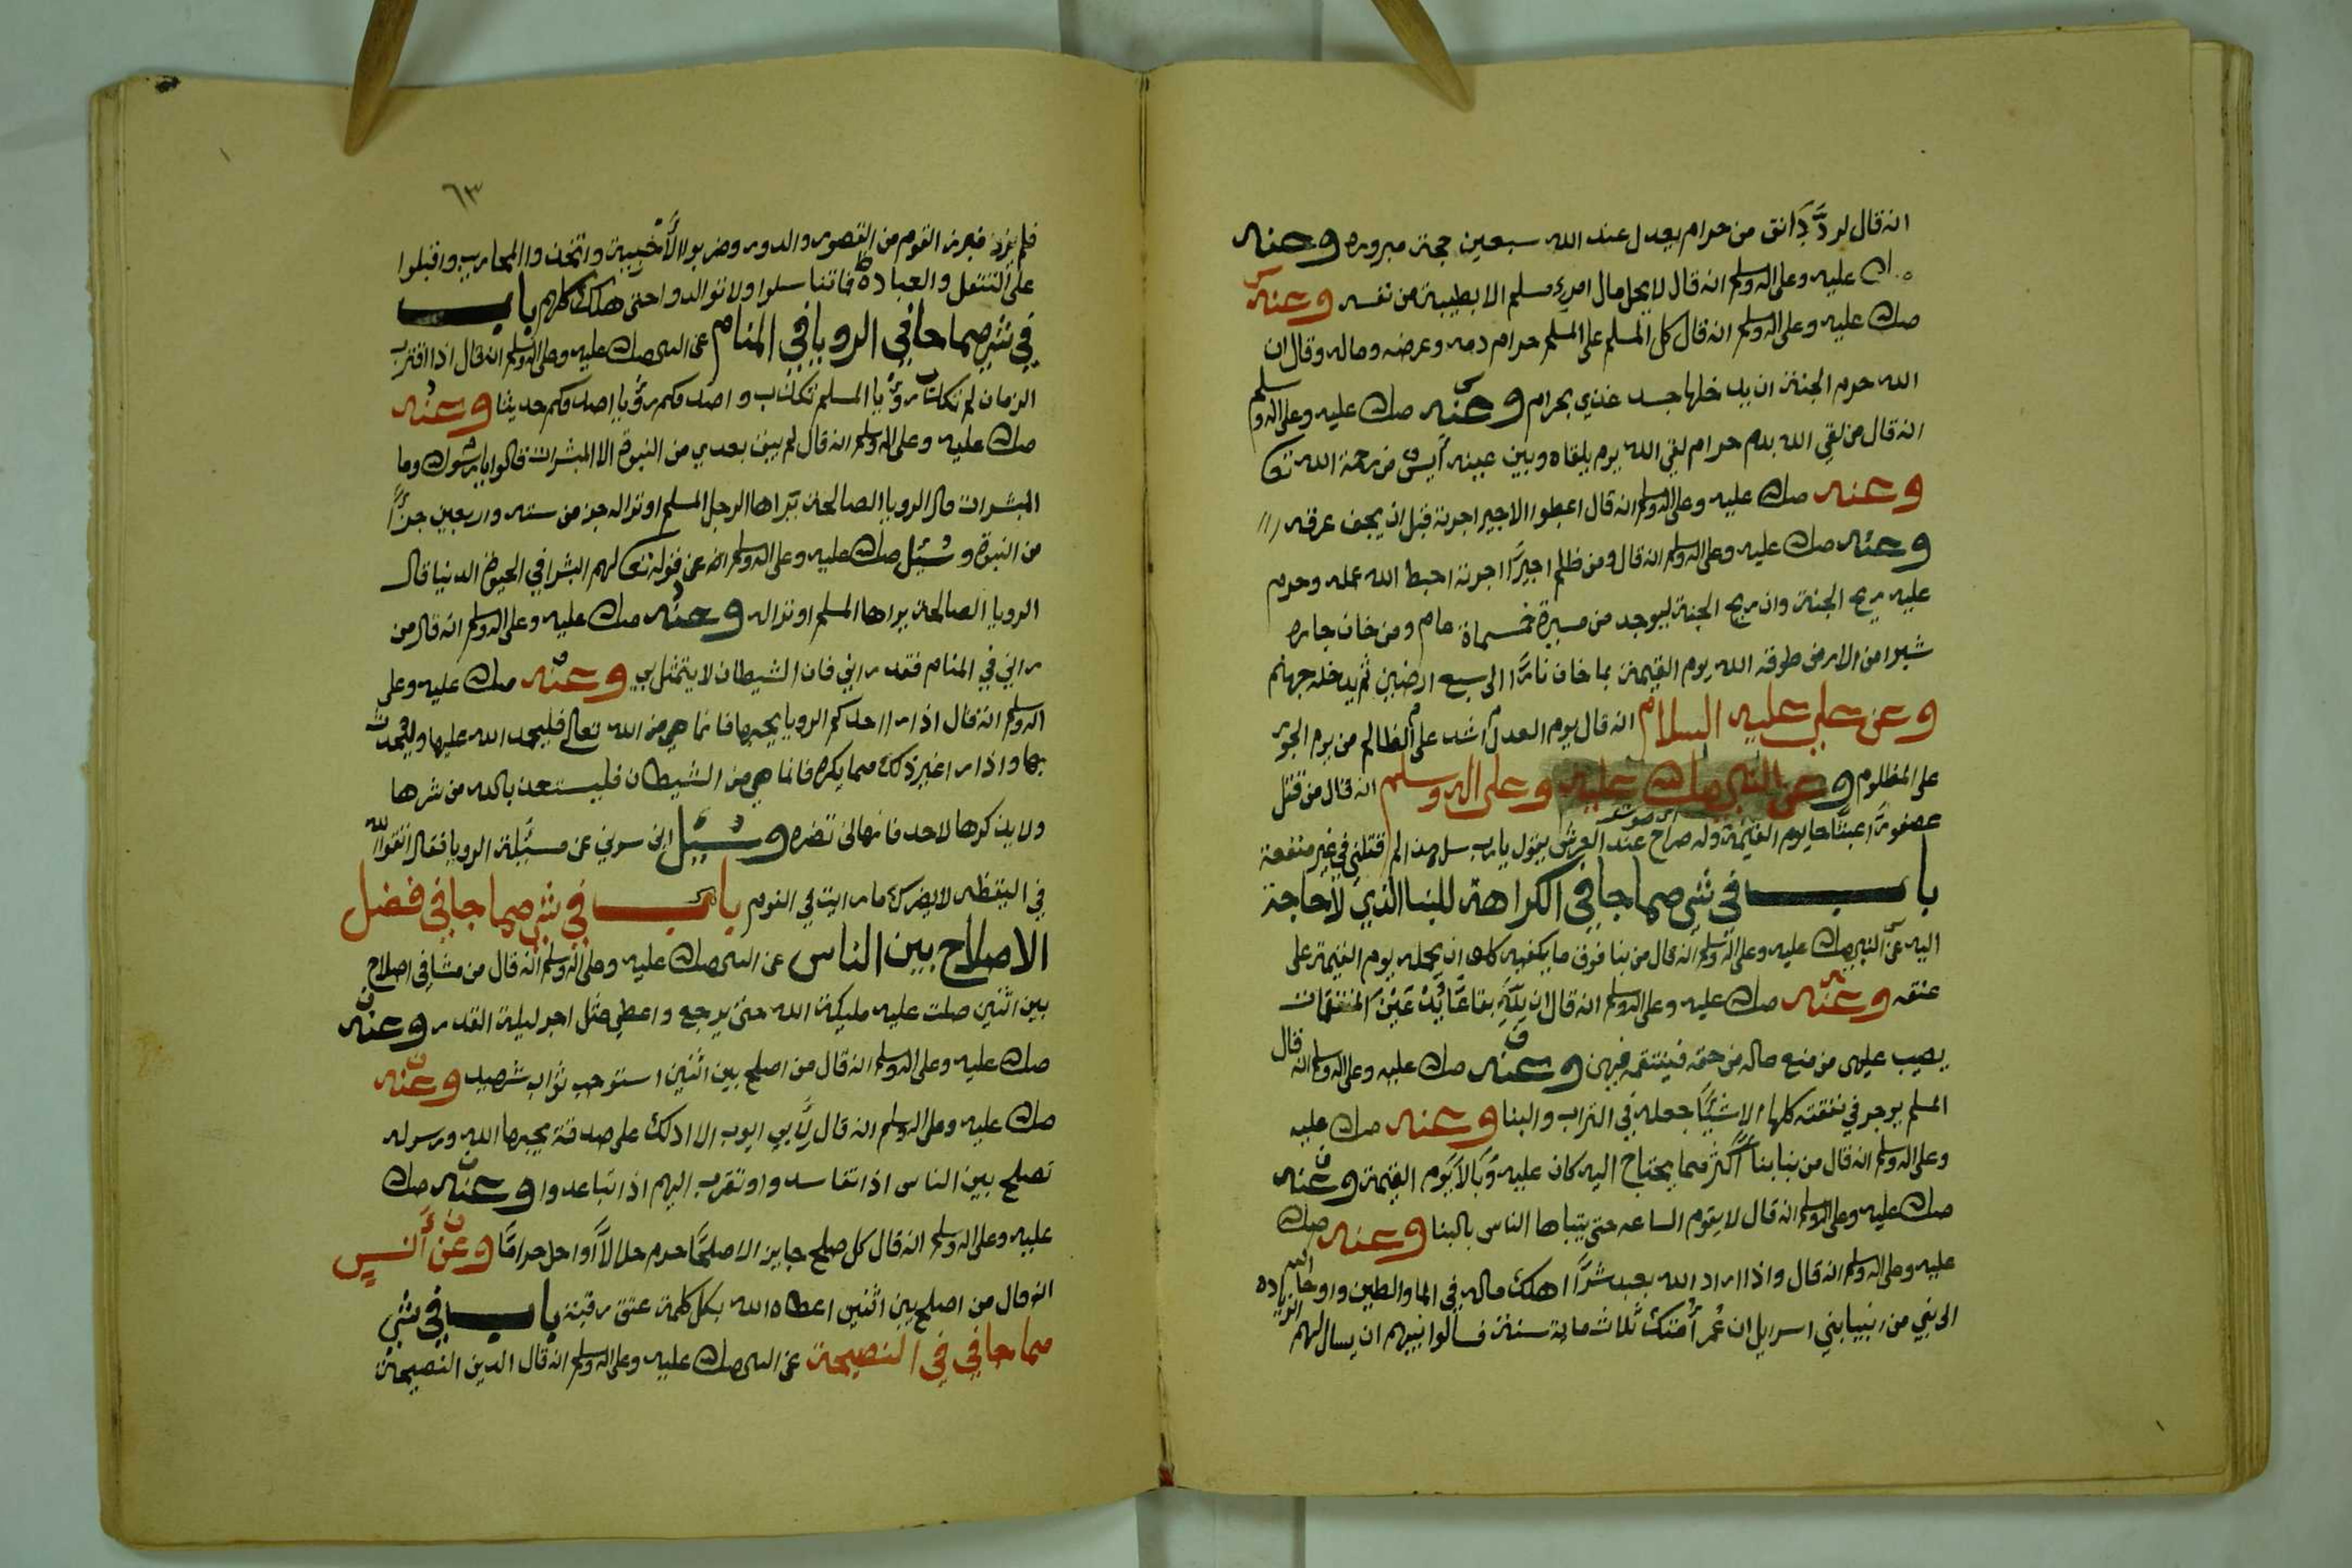 انه قال لرد دانق من حرام يعدل عند الله سبعين حجة مبروره وعنه
صلى الله عليه وعلى اله وسلم انه قال لا يحل مال امرء مسلم الا بطيبة من نفسه وعنه
صلى الله عليه وعلى اله وسلم انه قال كل المسلم على المسلم حرام دمه وعرضه وماله وقال ان
الله حرم الجنة ان يدخلها جسد غذي بحرام وعنه صلى الله عليه وعلى اله وسلم
انه قال من لقي الله بدم حرام لقي الله يوم يلقاه وبين عينيه آيس من رحمة الله تعا
وعنه صلى الله عليه وعلى اله وسلم انه قال اعطوا الاجير اجرته قبل ان يجف عرقه
وعنه صلى الله عليه وعلى اله وسلم انه قال ومن ظلم اجيرًا اجرته احبط الله عمله وحرم
عليه ريح الجنة وان ريح الجنة ليوجد من مسيرة خمسماة عام ومن خان جاره
شبرا من الارض طوقه الله يوم القيمة بما خان نارًا الى سبع ارضين ثم يدخله جهنم
وعن علي عليه السلام انه قال يوم العدل اشد على الظالم من يوم الجور
على المظلوم وعن النبي صلى الله عليه وعلى اله وسلم انه قال من قتل
عصفورًا عبثًا جا يوم القيمة وله صراخ عند العرش يقول يا رب سل هذا لم قتلني في غير منفعة
باب في شي مما جا في الكراهة للبنا الذي لا حاجة
اليه عن النبي صلى الله عليه وعلى اله وسلم انه قال من بنا فوق ما يكفيه كلف ان يحمله يوم القيمة على
عنقه وعنه صلى الله عليه وعلى اله وسلم انه قال ان لله بقاعًا يدعين المنتقمات
يصيب عليهن من منع ماله من حقه فينتقمه فيهن وعنه صلى الله عليه وعلى اله وسلم انه قال
المسلم يوجر في نفقته كلها الا شيئًا جعله في التراب والبنا وعنه صلى الله عليه
وعلى اله وسلم انه قال من بنا بنا اكثر مما يحتاج اليه كان عليه وبالا يوم القيمة وعنه
صلى الله عليه وعلى اله وسلم انه قال لا يقوم الساعه حتى يتباها الناس بالبنا وعنه صلى الله
عليه وعلى اله وسلم انه قال واذا اراد الله بعبد شرًا اهلك ماله في الما والطين واوحا الله
الى نبي من انبيا بني اسريل ان عمر أمتك ثلاث ماية سنة فسالوا نبيهم ان يسال لهم الزياده
٦٣
فلم يزد فبرز القوم من القصور والدور وضربوا الأخبية واتخذوا المحاريب واقبلوا
على التنفل والعبادة فما تناسلوا ولا توالدوا حتى هلك كلهم باب
في شي مما جا في الرويا في المنام عن النبي صلى الله عليه وعلى اله وسلم انه قال اذا اقترب
الزمان لم تكد رؤيا المسلم تكذب واصدقكم رؤيا اصدقكم حديثا وعنه
صلى الله عليه وعلى اله وسلم انه قال لم يبق بعدي من النبوة الا المبشرات قالوا يا رسول الله وما
المبشرات قال الرويا الصالحة يراها الرجل المسلم او ترا له جزء من سته واربعين جزءًا
من النبوة وسئل صلى الله عليه وعلى اله وسلم انه عن قوله تعا لهم البشرا في الحيوة الدنيا قال
الرويا الصالحة يراها المسلم او ترا له وعنه صلى الله عليه وعلى اله وسلم انه قال من
راني في المنام فقد راني فان الشيطان لا يتمثل بي وعنه صلى الله عليه وعلى
اله وسلم انه قال اذا را احدكم الرويا يحبها فانما هي من الله تعالى فليحمد الله عليها وليحدث
بها واذا را غير ذلك مما يكره فانما هي من الشيطان فليستعذ بالله من شرها
ولا يذكرها لاحد فانها لن تضره وسئل ابن سرين عن مسئلة الرويا فقال اتقوا الله
في اليقظه لا يضرك ما رايت في النوم باب في شي مما جا في فضل
الاصلاح بين الناس عن النبي صلى الله عليه وعلى اله وسلم انه قال من مشا في اصلاح
بين اثنين صلت عليه مليكة الله حتى يرجع واعطي مثل اجر ليلة القدر وعنه
صلى الله عليه وعلى اله وسلم انه قال من اصلح بين اثنين استوجب ثواب شهيد وعنه
صلى الله عليه وعلى اله وسلم انه قال لأبي ايوب الا ادلك على صدقة يحبها الله ورسوله
تصلح بين الناس اذا تفاسدوا وتقرب اليهم اذا تباعدوا وعنه صلى الله
عليه وعلى اله وسلم انه قال كل صلح جايز الا صلحًا حرم حلالاً او احل حرامًا وعن أنس
انه قال من اصلح بين اثنين اعطاه الله بكل كلمة عتق رقبة باب في شي
مما جا في في النصيحة عن النبي صلى الله عليه وعلى اله وسلم انه قال الدين النصيحة